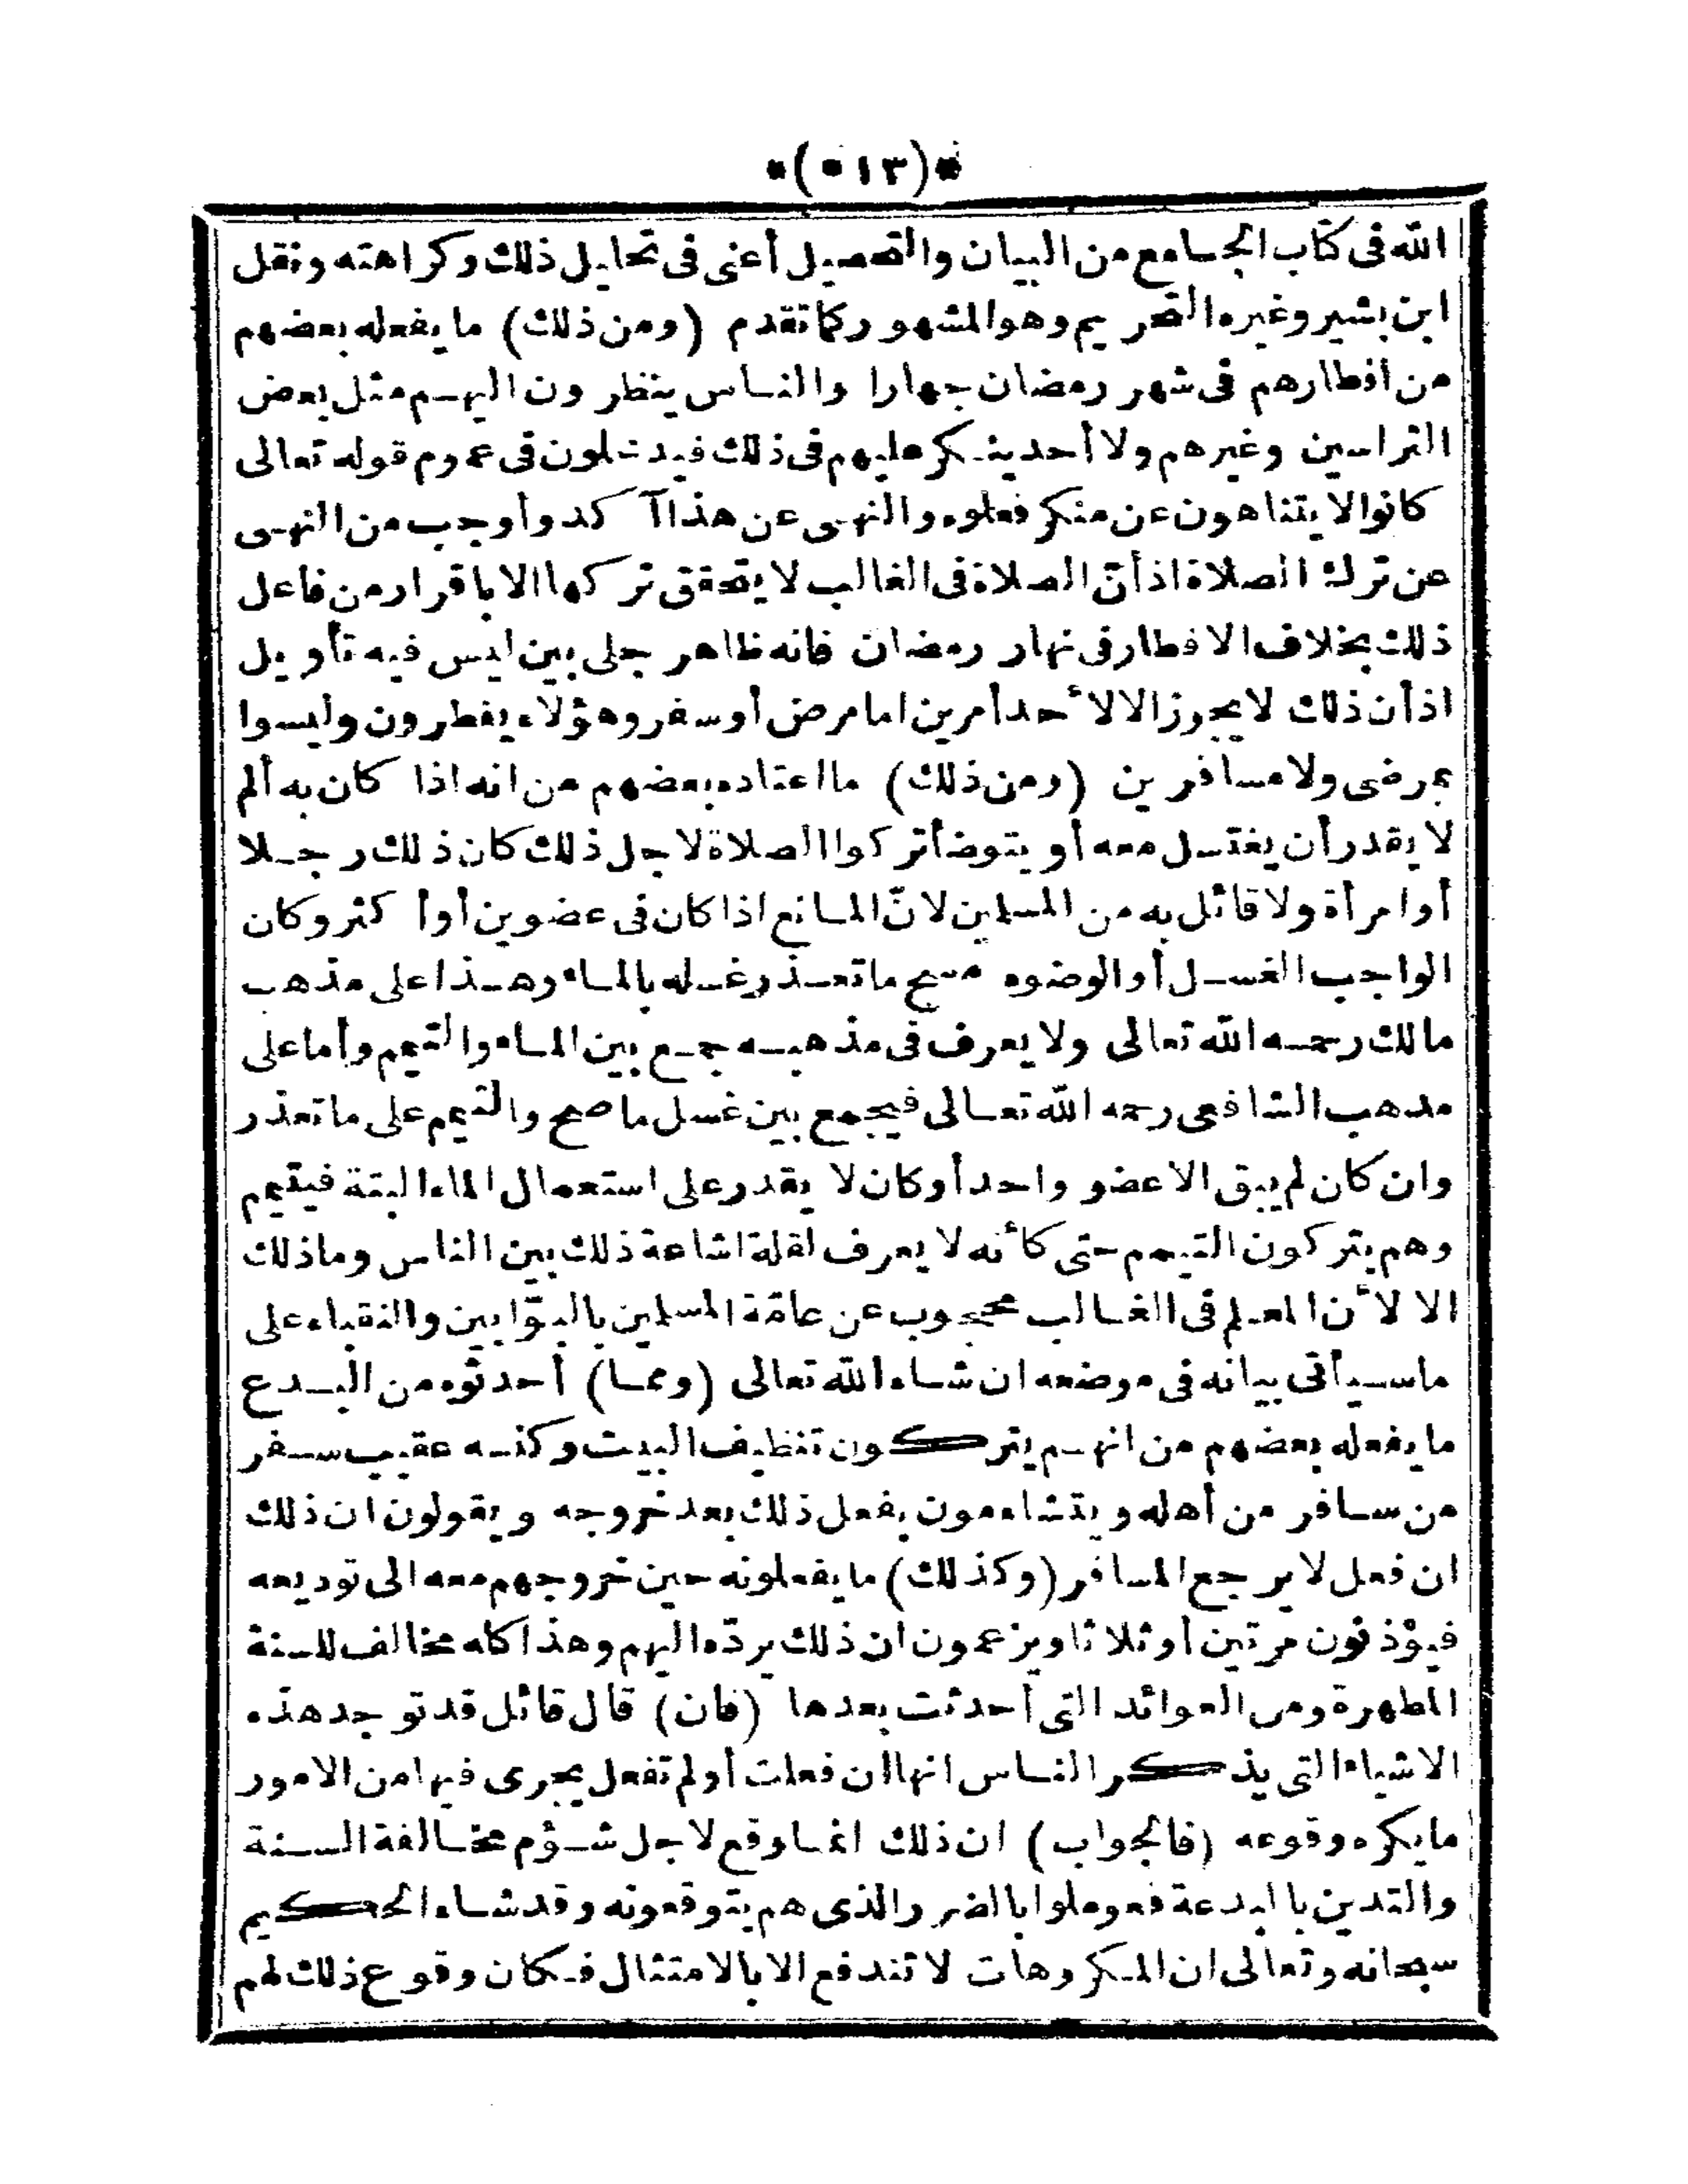 *(١٣٠)*
الله فى كتاب الجامع من البيان والتحصيل أعنى فى تحليل ذلك وكراهته ونقل
ابن بشير وغيره التحريم وهو المشهور كما تقدم (ومن ذلك) ما يفعله بعضهم
من افطارهم فى شهر رمضان جهارا والناس ينظرون اليهم مثل بعض
التراسين وغيرهم ولا أحد ينكر عليهم فى ذلك فيدخلون فى عموم قوله تعالى
كانوا لا يتناهون عن منكر فعلوه والنهى عن هذا آكد وأوجب من النهى
عن ترك الصلاة اذ أنّ الصلاة فى الغالب لا يتحقق تركها الا باقرار من فاعل
ذلك بخلاف الافطار فى نهار رمضان فانه ظاهر جلى بين ليس فيه تأويل
اذ أن ذلك لا يجوز الا لأحد أمرين اما مرض أو سفر وهؤلاء يفطرون وليسوا
بمرضى ولا مسافرين (ومن ذلك) ما اعتاده بعضهم من انه اذا كان به ألم
لا يقدر أن يغتسل معه أو يتوضأ تركوا الصلاة لاجل ذلك كان ذلك رجلا
أو امرأة ولا قائل به من المسلمين لانّ المانع اذا كان فى عضوين أو أكثر وكان
الواجب الغسل أو الوضوء مسح ما تعذر غسله بالماء وهذا على مذهب
مالك رحمه الله تعالى ولا يعرف فى مذهبه جمع بين الماء والتيمم وأما على
مذهب الشافعى رحمه الله تعالى فيجمع بين غسل ما صح والتيمم على ما تعذر
وان كان لم يبق الا عضو واحد أو كان لا يقدر على استعمال الماء البتة فيتيمم
وهم يتركون التيمم حتى كأنه لا يعرف لقلة اشاعة ذلك بين الناس وما ذلك
الا لأن العلم فى الغالب محجوب عن عامّة المسلمين بالبوّابين والنقباء على
ما سيأتى بيانه فى موضعه ان شاء الله تعالى (ومما) أحدثوه من البدع
ما يفعله بعضهم من انهم يتركون تنظيف البيت وكنسه عقيب سفر
من سافر من أهله ويتشاءمون بفعل ذلك بعد خروجه ويقولون ان ذلك
ان فعل لا يرجع المسافر (وكذلك) ما يفعلونه حين خروجهم معه الى توديعه
فيؤذنون مرتين أو ثلاثا ويزعمون ان ذلك يردّه اليهم وهذا كله مخالف للسنة
المطهرة ومن العوائد التى أحدثت بعدها (فان) قال قائل قد توجد هذه
الاشياء التى يذكر الناس انها ان فعلت أو لم تفعل يجرى فيها من الامور
ما يكره وقوعه (فالجواب) ان ذلك انما وقع لاجل شؤم مخالفة السنة
والتدين بالبدعة فعوملوا بالضرر الذى هم يتوقعونه وقد شاء الحكيم
سبحانه وتعالى ان المكروهات لا تندفع الا بالامتثال فكان وقوع ذلك لهم